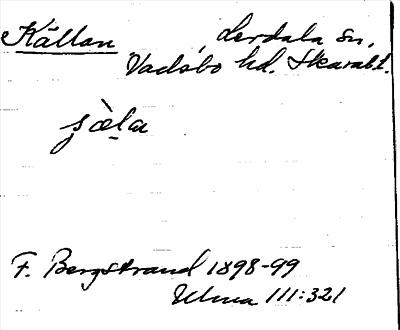 Källan, Lerdala sn,
Vadsbo hd. Skarab.l.
F. Bergstrand 1898-99
Ulma 111:321